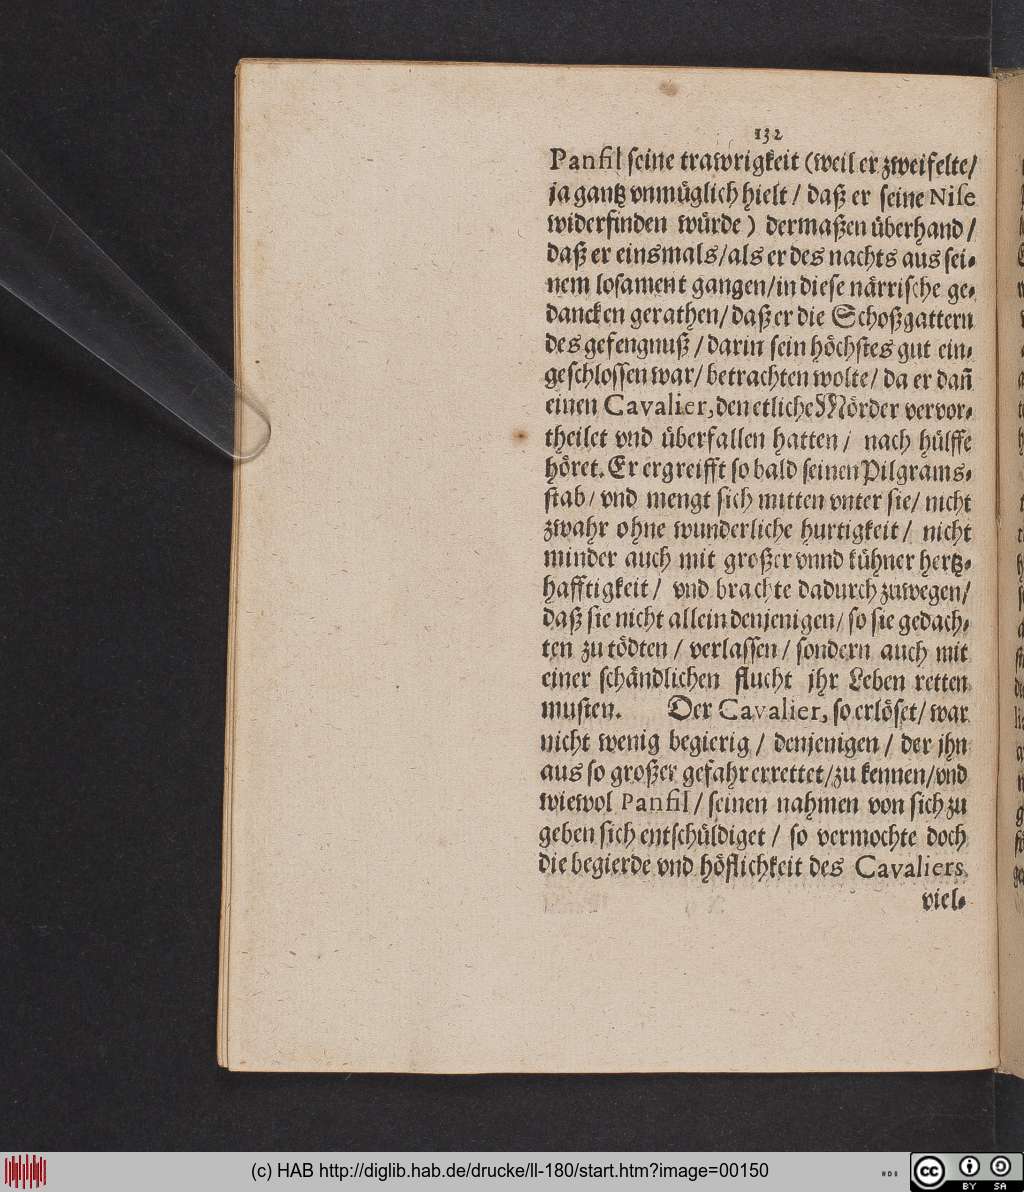 132
Panfil ſeine trawrigkeit (weil er zweifelte/
ja gantz vnmüglich hielt / daß er ſeine Niſe
widerfinden würde) dermaßen überhand /
daß er einsmals/als er des nachts aus ſei⸗
nem loſament gangen/in dieſe närriſche ge⸗
dancken gerathen/ daß er die Schoßgattern
des gefengnuß / darin ſein höchſtes gut ein⸗
geſchloſſen war/ betrachten wolte/ da er dañ
einen Cavalier, den etliche Mörder vervor⸗
theilet vnd überfallen hatten / nach hülffe
höret. Er ergreifft ſo bald ſeinen Pilgrams⸗
ſtab/ vnd mengt ſich mitten vnter ſie/ nicht
zwahr ohne wunderliche hurtigkeit / nicht
minder auch mit großer vnnd kühner hertz⸗
hafftigkeit / vnd brachte dadurch zuwegen/
daß ſie nicht allein denjenigen/ ſo ſie gedach⸗
ten zu tödten / verlaſſen / ſondern auch mit
einer ſchändlichen flucht jhr Leben retten
muſten. Der Cavalier, ſo erlöſet/ war
nicht wenig begierig / denjenigen / der jhn
aus ſo großer gefahr errettet/zu kennen/vnd
wiewol Panfil / ſeinen nahmen von ſich zu
geben ſich entſchüldiget / ſo vermochte doch
die begierde vnd höflichkeit des Cavaliers
viel⸗
(c) HAB http://diglib.hab.de/drucke/ll-180/start.htm?image=00150
cc BY SA